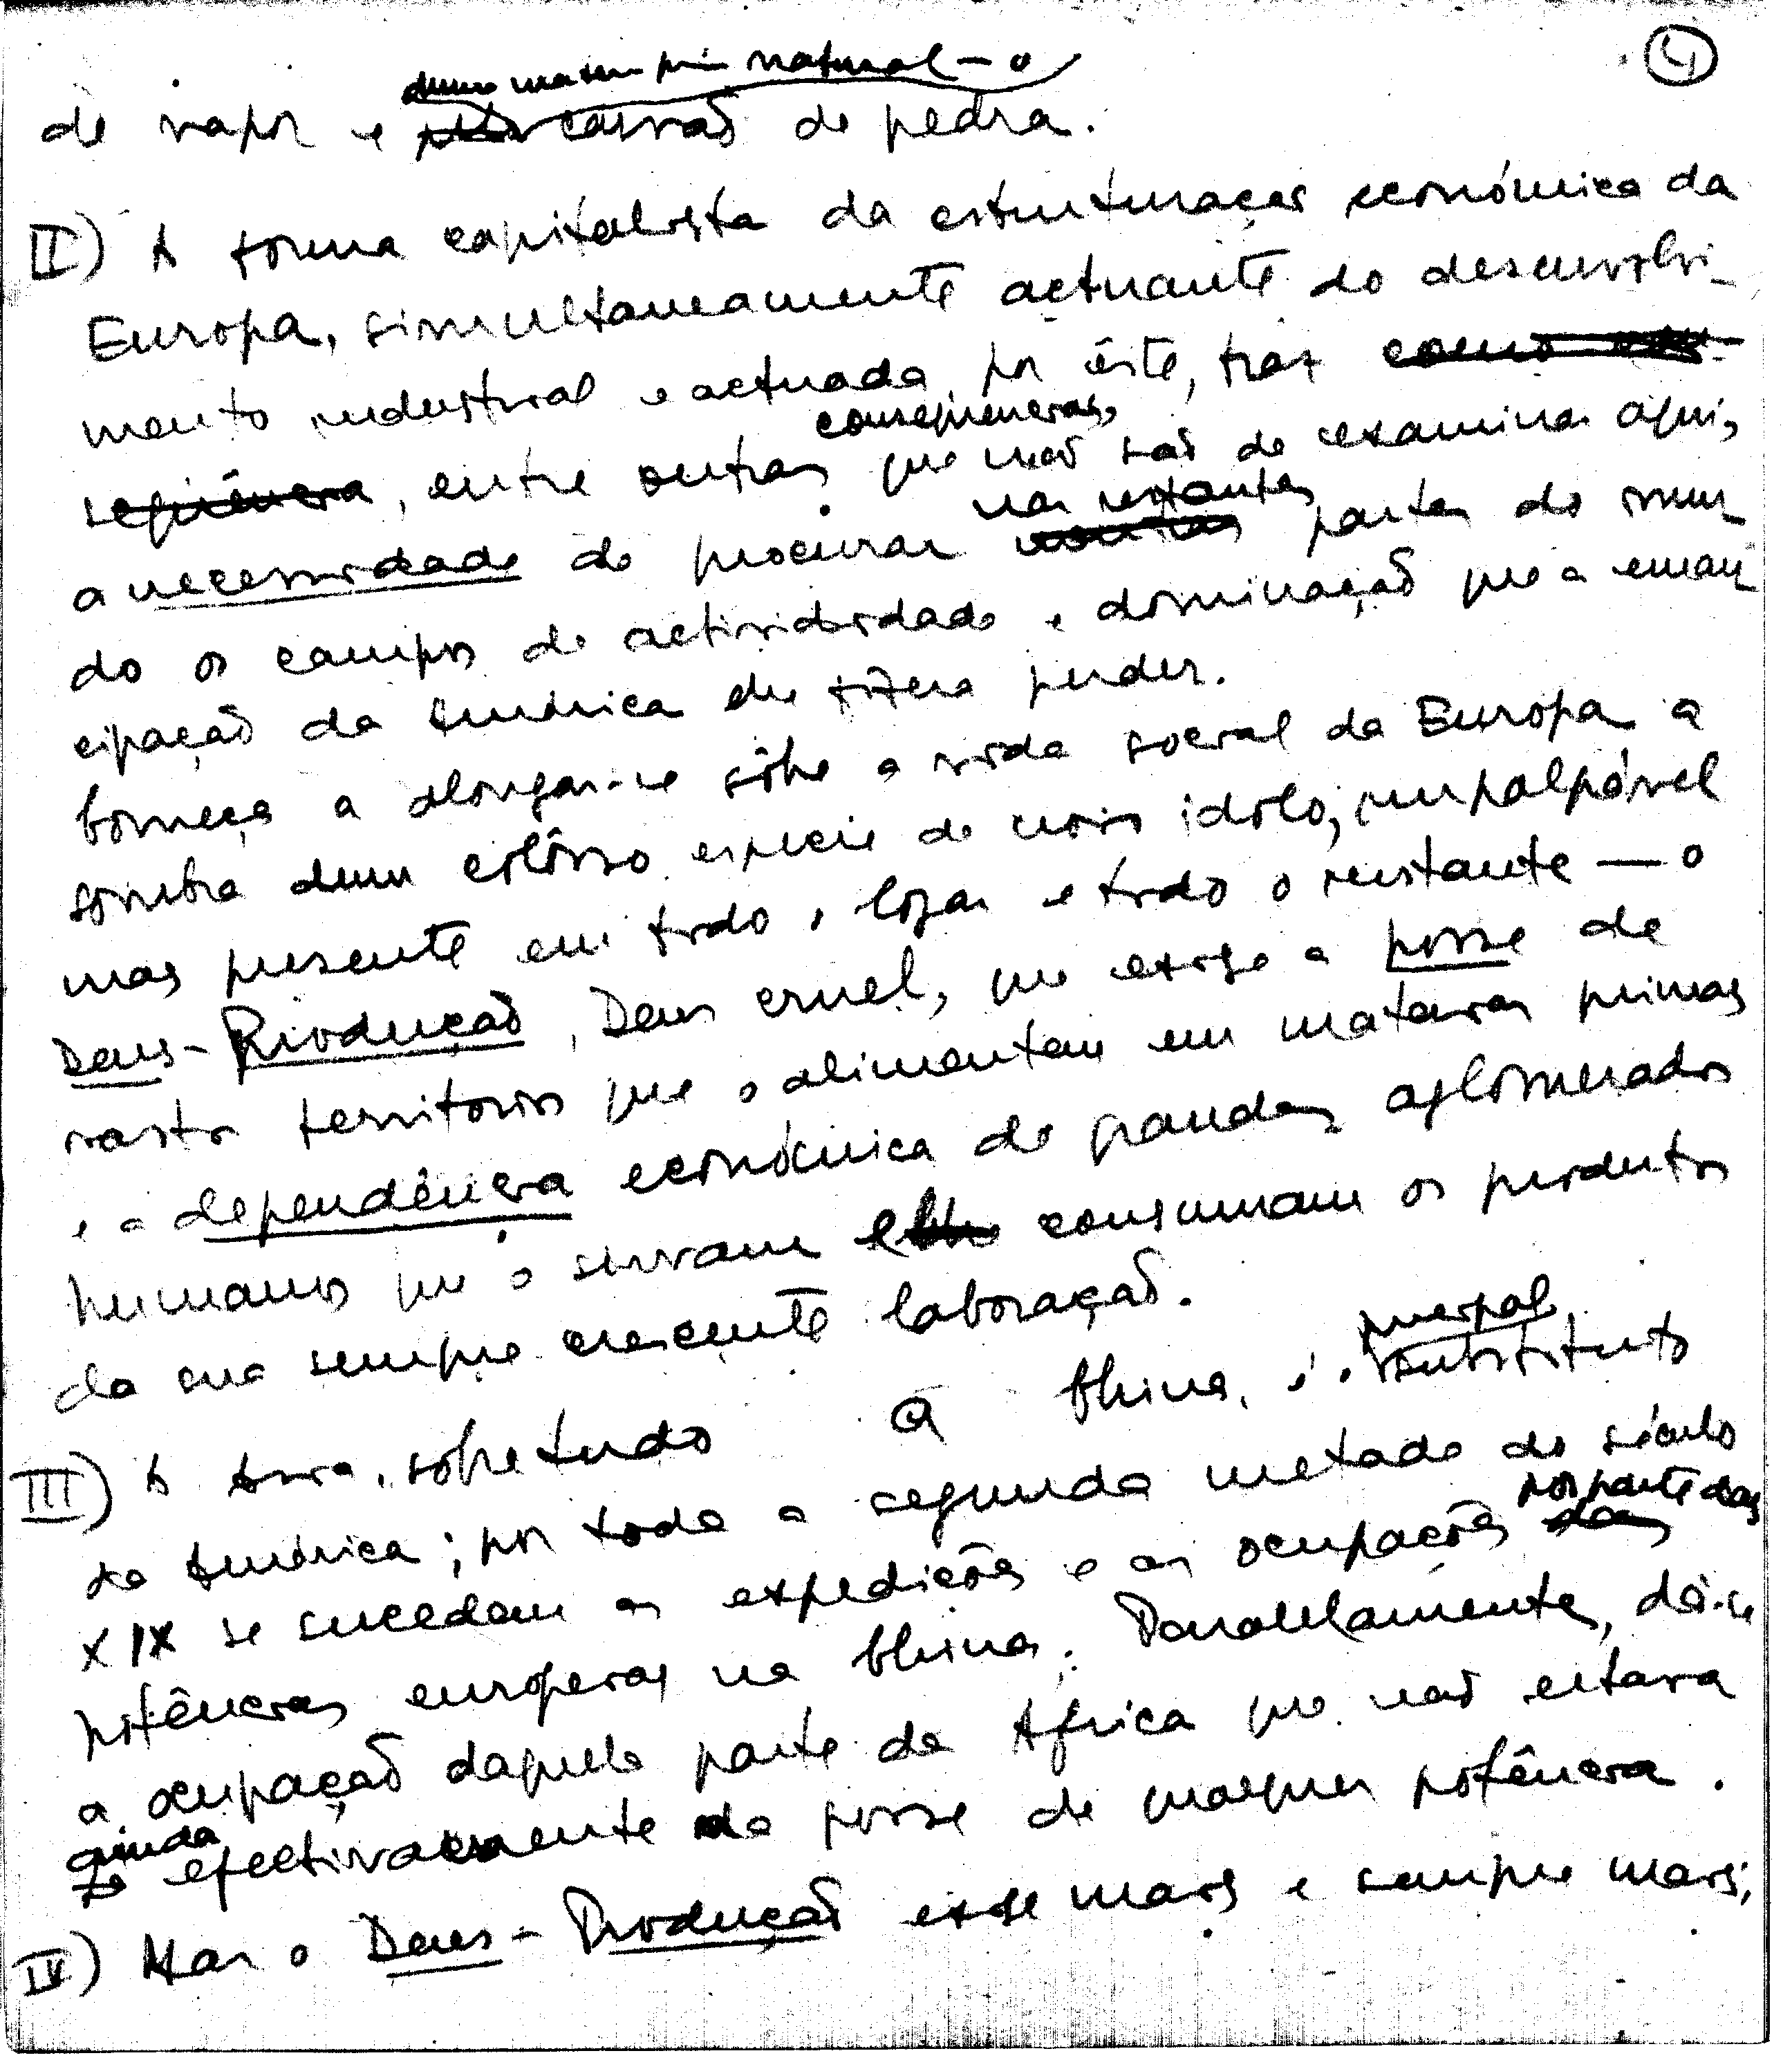 4
duma materia prima natural — o
de vapor e pelo carvão de pedra.
II) A forma capitalista da estruturação económica da
Europa, simultaneamente actuante do desenvolvi-
mento industrial e actuada por êste, traz como con-
consequencias,
seqüência, entre outras que não são de examinar aqui,
nas restantes
a necessidade de procurar noutras partes do mun-
do os campos de actividade e dominação que a eman-
cipação da América lhe fizera perder.
Começa a alongar-se sôbre a vida social da Europa a
sombra dum colôsso, especie de novo idolo, impalpável
mas presente em todo o logar e todo o instante — o
Deus-Producção, Deus cruel, que exige a posse de
vastos territorios que o alimentam em materias primas
e a dependência económica de grandes aglomerados
humanos que o sirvam e lhe consumam os produtos
da sua sempre crescente laboração.
principal
III) A Asia, sobretudo a China, é o substituto
da América; por toda a segunda metade do século
por parte das
XIX se sucedem as expedições e as ocupações das
potências europeias na China. Paralelamente, dá-se
a ocupação daquela parte da Africa que não estava
ainda
efectivamente na posse de qualquer potência.
IV) Mas o Deus-Produção exige mais e sempre mais;